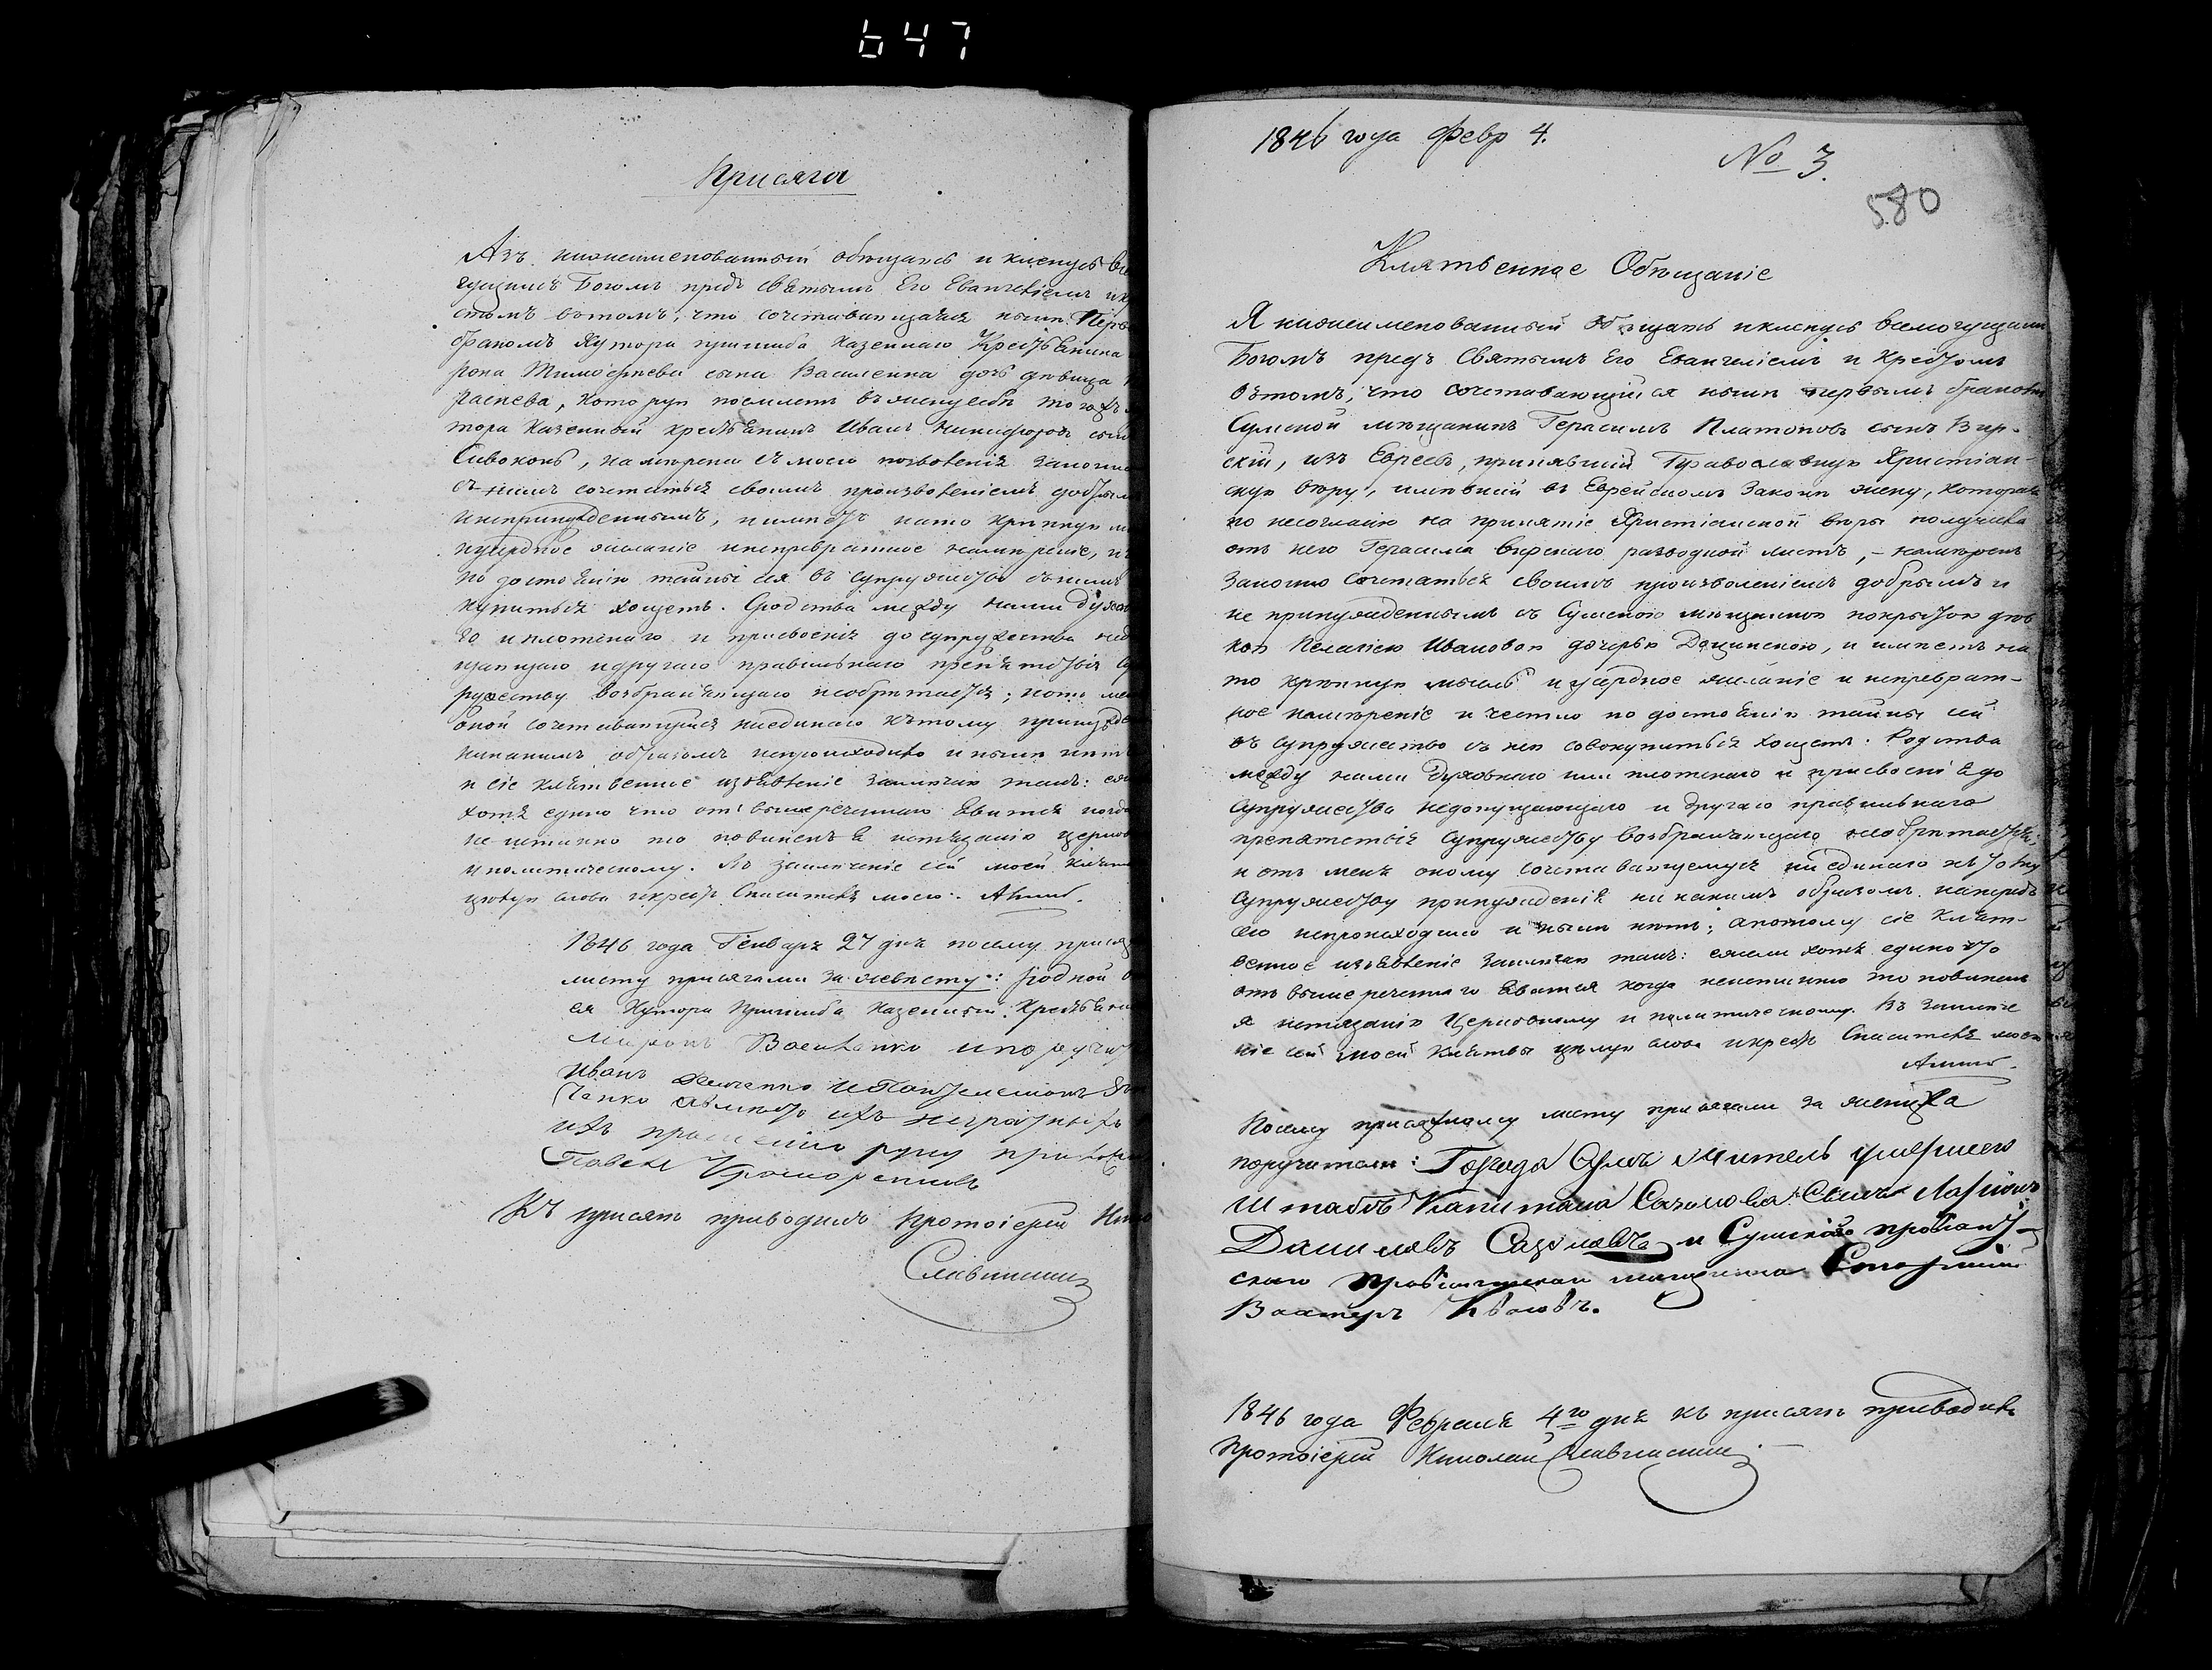 647
Присяга
Азъ нижеименованный обещаюсь и кленусь Все
гущимъ Богомъ предъ Святымъ Его Евангеліемъ и к
стомъ въ томъ, что сочетавающаяся нынѣ Перв
бракомъ Хутора Казеннаго Крестьянина
рона Тимофеева сына Василенка дочь девица
, которую поемлетъ въ жену себѣ того жъ
тора Казенный крестьянинъ Иванъ Никифоровъ сын
Сивоконь, намѣрена съ моего позволенія законно
съ нимъ сочетаться своимъ произволеніемъ добрым
инепринужденнымъ, и имѣетъ на то крѣпкую м
иусердное желаніе инепревратное намѣреніе, и ч
по достоянію тайны сея въ супружество съ нимъ
купиться хощетъ. Сродства между ними Духов
го и плотскаго и присвоенія до супружества нед
щающаго идругаго правильнаго препятствія су
ружеству возбраняющаго необрѣтается; ютъ ме
оной сочетавающейся ниединаго къ тому принужде
никакимъ образомъ непроисходило и нынѣ нѣтъ
и сіе клятвенное изъявленіе заключаю такъ: еж
хотя едино что отъ вышереченнаго явится когда
не истинно то повиненъ я истязанію церков
и политическому. Въ заключеніе сей моей клятв
цѣлую слова икрестъ Спасителя моего. Аминь.
1846 года Генваря 27 дня по сему прися
листу присягали за невѣсту: родной о
ея Хутора Казенный Крестьянин
Миронъ Василенко и поручит
Иванъ
ченко аьмѣсто ихъ неграмотныхъ
ихъ прошенію руку приложи
Павелъ
Къ присягѣ приводилъ Протоіерей Нико
1846 года Февр 4.
№ 3.
580
Клятвенное Обѣщаніе
Я нижеименованный обѣщаюсь икленусь всемогущимъ
Богомъ предъ Святымъ Его Евангеліемъ и Крестомъ
въ томъ, что сочетавающійся нынѣ первымъ бракомъ
Сумской мѣщанинъ Герасимъ Платоновъ сынъ Вир-
скій, изъ Евреевъ, принявшій Православную Христіан-
скую вѣру, имѣвшій въ Еврейскомъ Законѣ жену, которая
по несогласію на принятіе Христіанской вѣры получила
отъ него Герасима Вирскаго разводной листъ, - намѣренъ
законно сочетаться своимъ произволеніемъ добрымъ и
не принужденнымъ съ Сумскою мѣщанкою дѣв
кою Пелагіею Ивановою дочерью , и имѣетъ на
то крѣпкую мысль и усердное желаніе и непреврат-
ное намѣреніе и честно по достоянію тайны сей
въ супружество съ нею совокупиться хощетъ. Родства
между ними Духовнаго или плотскаго и присвоенія до
супружества недопущающаго и другаго правильнаго
препятствія супружеству возбраняющаго необрѣтается;
и отъ меня оному сочетавающемуся ни единаго къ тому
супружеству принужденія никакимъ образомъ напредъ
сего непроисходило и нынѣ нѣтъ; апотому сіе клят-
венное изъявленіе заключаю такъ: ежели хотя едино что
отъ вышереченнаго явится когда неистинно то повиненъ
я истязанію Церковному и политическому. Въ заключе
ніе сей моей клятвы цѣлую слова икрестъ Спасителя моего
Аминь.
По сему присяжному листу присягали за жениха
поручители: Города Сумъ житель умершего
Штабсъ Капитана Сынъ
и Сумскаго
скаго провіантскаго магазина
Вахтеръ
1846 года Февраля 4го дня къ присягѣ приводилъ
Протоіерей Николай